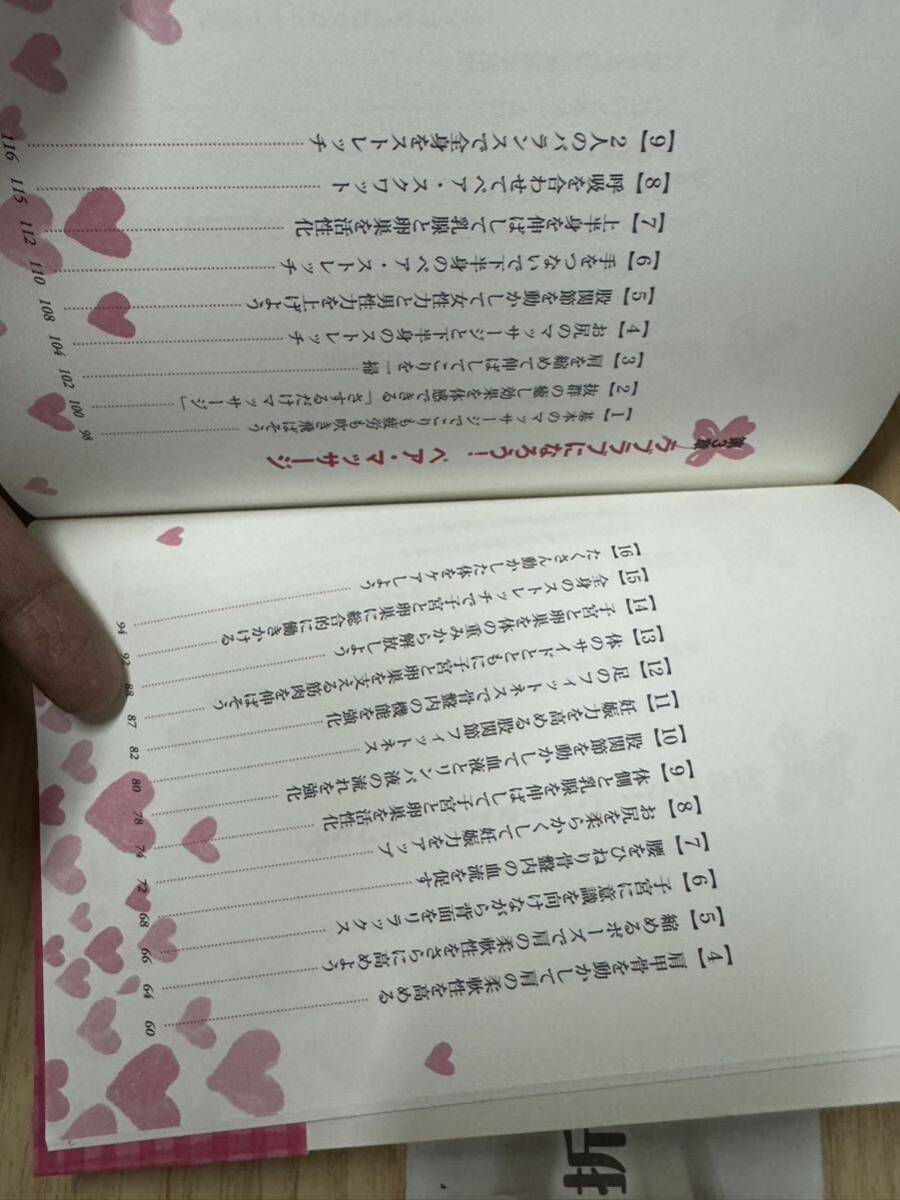 【4】肩甲骨を動かして肩の柔軟性を高める 60
【5】縮めるポーズで肩の柔軟性をさらに高めよう 64
【6】子宮に意識を向けながら背面をリラックス 66
【7】腰をひねり骨盤内の血流を促す 68
【8】お尻を柔らかくして妊娠力をアップ 72
【9】体側と乳腺を伸ばして子宮と卵巣を活性化 74
【10】股関節を動かして血液とリンパ液の流れを強化 78
【11】妊娠力を高める股関節フィットネス 80
【12】足のフィットネスで骨盤内の機能を強化 82
【13】体のサイドとともに子宮と卵巣を支える筋肉を伸ばそう 87
【14】子宮と卵巣を体の重みから解放しよう 88
【15】全身のストレッチで子宮と卵巣に総合的に働きかける 92
【16】たくさん動かした体をケアしよう 94
第3章 ラブラブになろう！ ペア・マッサージ
【1】基本のマッサージでこりも疲労も吹き飛ばそう 98
【2】抜群の癒し効果を体感できる「さするだけマッサージ」 100
【3】肩を縮めて伸ばしてこりを一掃 102
【4】お尻のマッサージと下半身のストレッチ 104
【5】股関節を動かして女性力と男性力を上げよう 108
【6】手をつないで下半身のペア・ストレッチ 110
【7】上半身を伸ばして乳腺と卵巣を活性化 112
【8】呼吸を合わせてペア・スクワット 115
【9】2人のバランスで全身をストレッチ 116